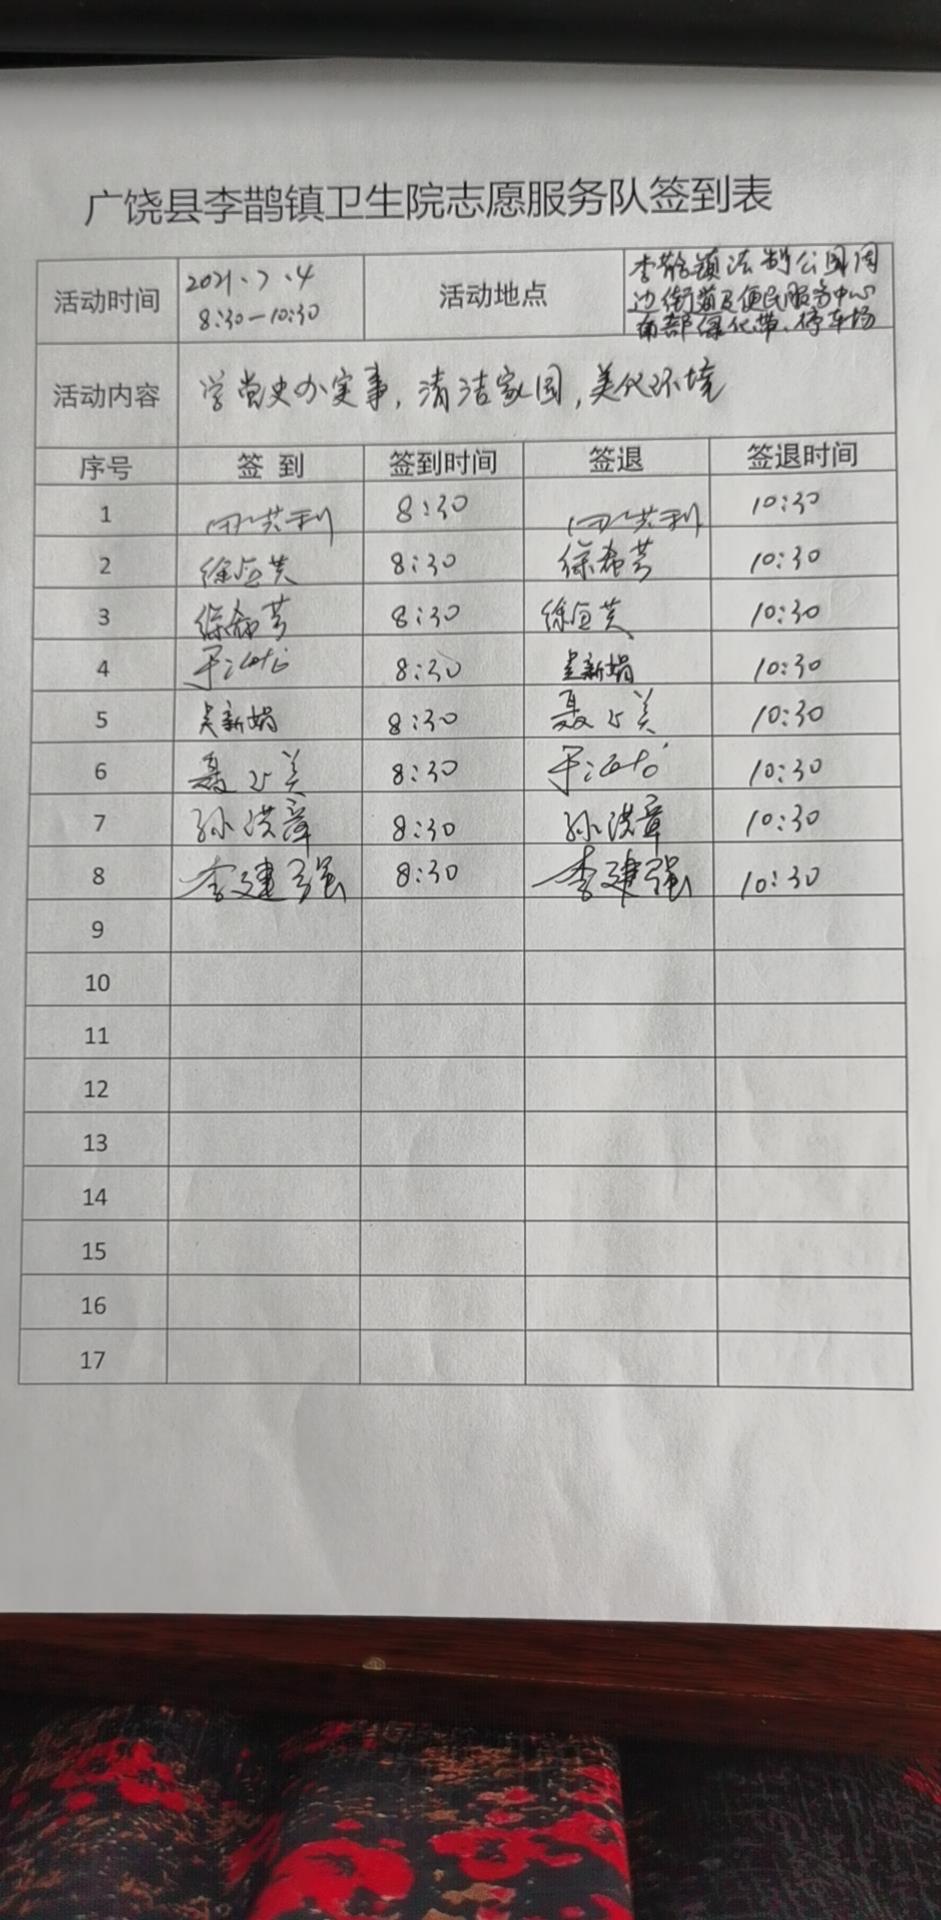 广饶县李鹊镇卫生院志愿服务队签到表
活动时间 2021.7.4 8:30-10:30 活动地点 李鹊镇法制公园周
边街道及便民服务中心
南部绿化带、停车场
活动内容 学党史办实事,清洁家园,美化环境
序号 签到 签到时间 签退 签退时间
1 8:30 10:30
2 徐应芙 8:30 徐希芳 10:30
3 徐希芳 8:30 徐应芙 10:30
4 8:30 吴新娟 10:30
5 吴新娟 8:30 聂玉美 10:30
6 聂玉美 8:30 10:30
7 孙洪章 8:30 孙洪章 10:30
8 李建强 8:30 李建强 10:30
9
10
11
12
13
14
15
16
17